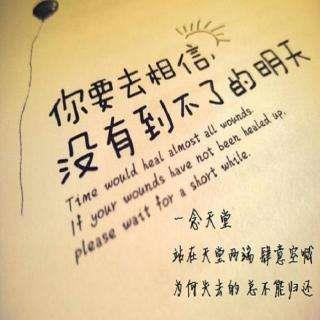 你要去相信,
没有到不了的明天
Time would heal almost all wounds.
If your wounds have not been healed up,
please wait for a short while.
一念天堂
站在天堂两端 肆意空喊
为何失去的 总不能归还